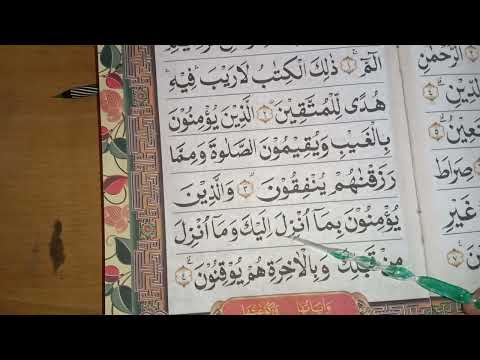 الٓمّٓ ۚ ۝١ ذٰلِكَ الْكِتٰبُ لَا رَيْبَ ۛ فِيْهِ ۛ
هُدًى لِّلْمُتَّقِيْنَ ۙ ۝٢ الَّذِيْنَ يُؤْمِنُوْنَ
بِالْغَيْبِ وَيُقِيْمُوْنَ الصَّلٰوةَ وَمِمَّا
رَزَقْنٰهُمْ يُنْفِقُوْنَ ۙ ۝٣ وَالَّذِيْنَ
يُؤْمِنُوْنَ بِمَاۤ اُنْزِلَ اِلَيْكَ وَمَاۤ اُنْزِلَ
مِنْ قَبْلِكَ ۚ وَبِالْاٰخِرَةِ هُمْ يُوْقِنُوْنَ ۗ ۝٤
الرَّحْمٰنِ
صِرَاطَ
غَيْرِ